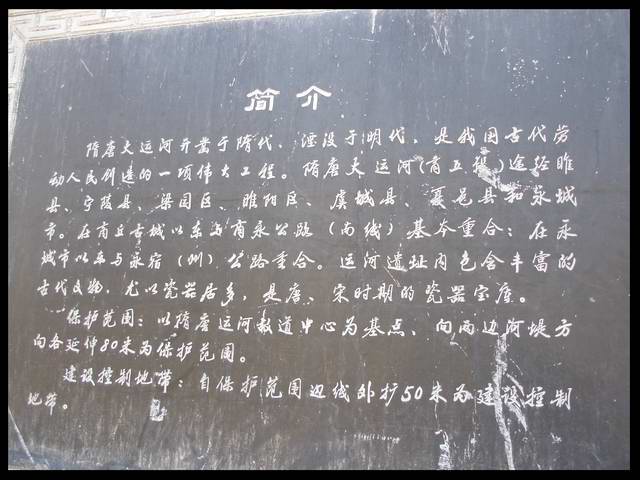 简介
隋唐大运河开凿于隋代，湮没于明代，是我国古代劳
动人民创造的一项伟大工程。隋唐大运河(商丘段)途经睢
县、宁陵县、梁园区、睢阳区、虞城县、夏邑县和永城
市。在商丘古城以东与商永公路（南线）基本重合；在永
城市以东与永宿（州）公路重合。运河遗址内包含丰富的
古代文物，尤以瓷器居多，是唐、宋时期的瓷器宝库。
保护范围：以隋唐运河故道中心为基点、向两边河堤方
向各延伸80米为保护范围。
建设控制地带：自保护范围边线外扩50米为建设控制
地带。